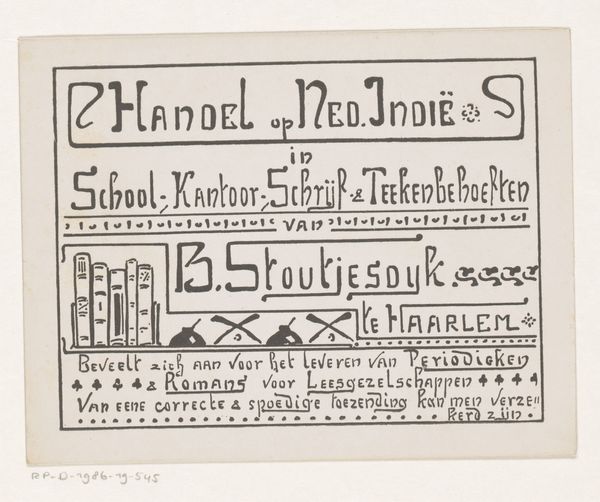 Handel op Ned. Indië
in
School-, Kantoor-, Schrijf- & Teekenbehoeften
van
B. Stoutjesdyk
te Haarlem
Beveelt zich aan voor het leveren van Periodieken
& Romans voor Leesgezelschappen
Van eene correcte & spoedige toezending kan men verze=
kerd zijn.
RP-D-1986-19-545